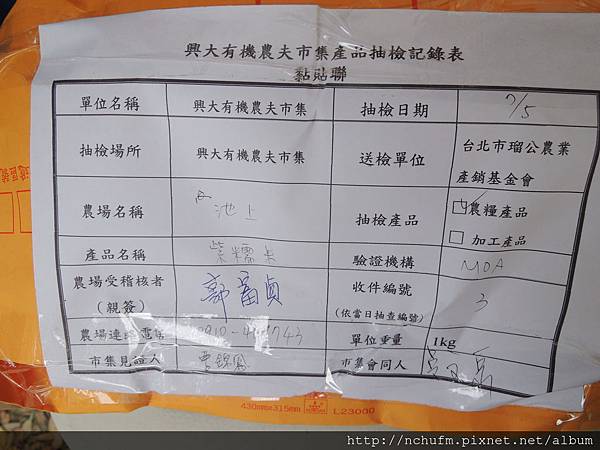 興大有機農夫市集產品抽檢記錄表
黏貼聯
單位名稱 興大有機農夫市集 抽檢日期 7/5
抽檢場所 興大有機農夫市集 送檢單位 台北市瑠公農業
產銷基金會
農場名稱 池上 抽檢產品 農糧產品
加工產品
產品名稱 紫糯米 驗證機構 MOA
農場受稽核者
(親簽) 郭富貞 收件編號
(依當日抽查編號) 3
農場連絡電話 單位重量 1kg
市集見證人 市集會同人
430mm×315mm L23000
http://nchufm.pixnet.net/album